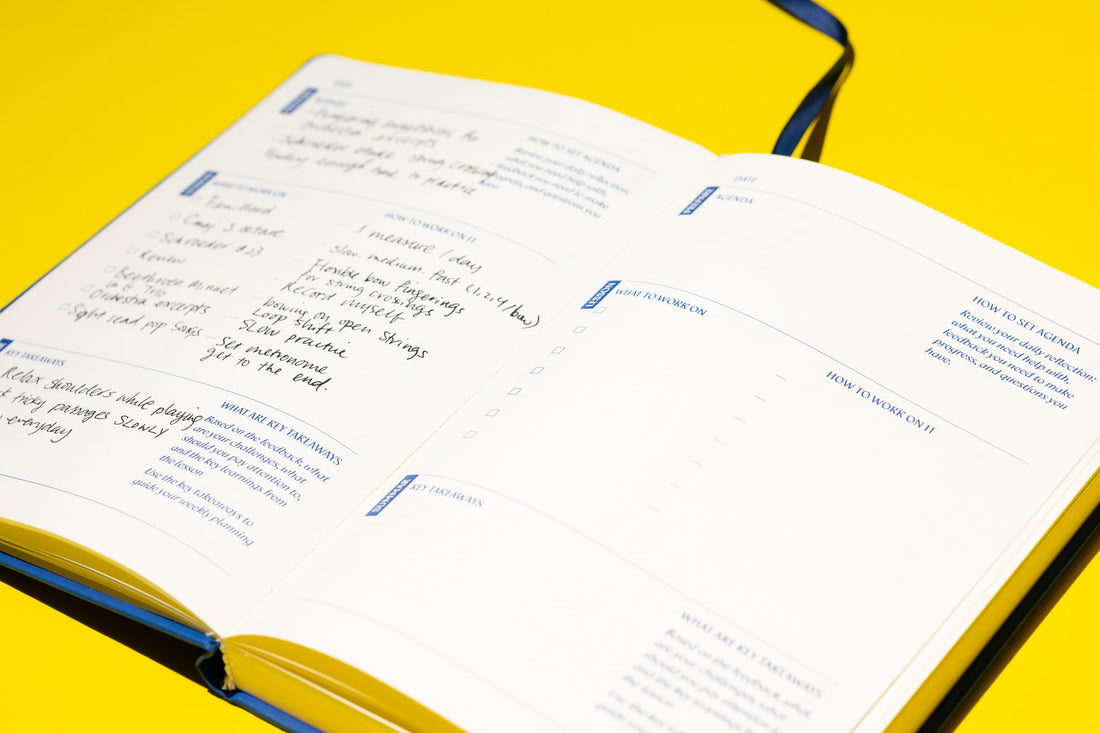 DATE
AGENDA
orchestra excerpts
Schroeder etude string crossing
Finding enough time to practice
HOW TO SET AGENDA
Review your daily reflection:
what you need help with,
feedback you need to make
progress, and questions you
have.
WHAT TO WORK ON
C maj 3 octave
Schroeder #23
Review
Beethoven minuet
in G Trio
Orchestra excerpts
Sight read pop songs
HOW TO WORK ON IT
- 1 measure / day
- Slow. medium. Fast (1,2,4/bow)
- Flexible bow fingerings
for string crossings
- Record myself
- bowing on open strings
- Loop shift
- SLOW practice
- Set metronome
get to the end.
KEY TAKEAWAYS
Relax shoulders while playing
tricky passages SLOWLY
everyday
WHAT ARE KEY TAKEAWAYS
Based on the feedback, what
are your challenges, what
should you pay attention to,
and the key learnings from
the lesson
Use the key takeaways to
guide your weekly planning
DATE
PREPARE
AGENDA
HOW TO SET AGENDA
Review your daily reflection:
what you need help with,
feedback you need to make
progress, and questions you
have.
LESSON
WHAT TO WORK ON
HOW TO WORK ON IT
SUMMARY
KEY TAKEAWAYS
WHAT ARE KEY TAKEAWAYS
Based on the feedback, what
are your challenges, what
should you pay attention to,
and the key learnings from
the lesson
Use the key takeaways to
guide your